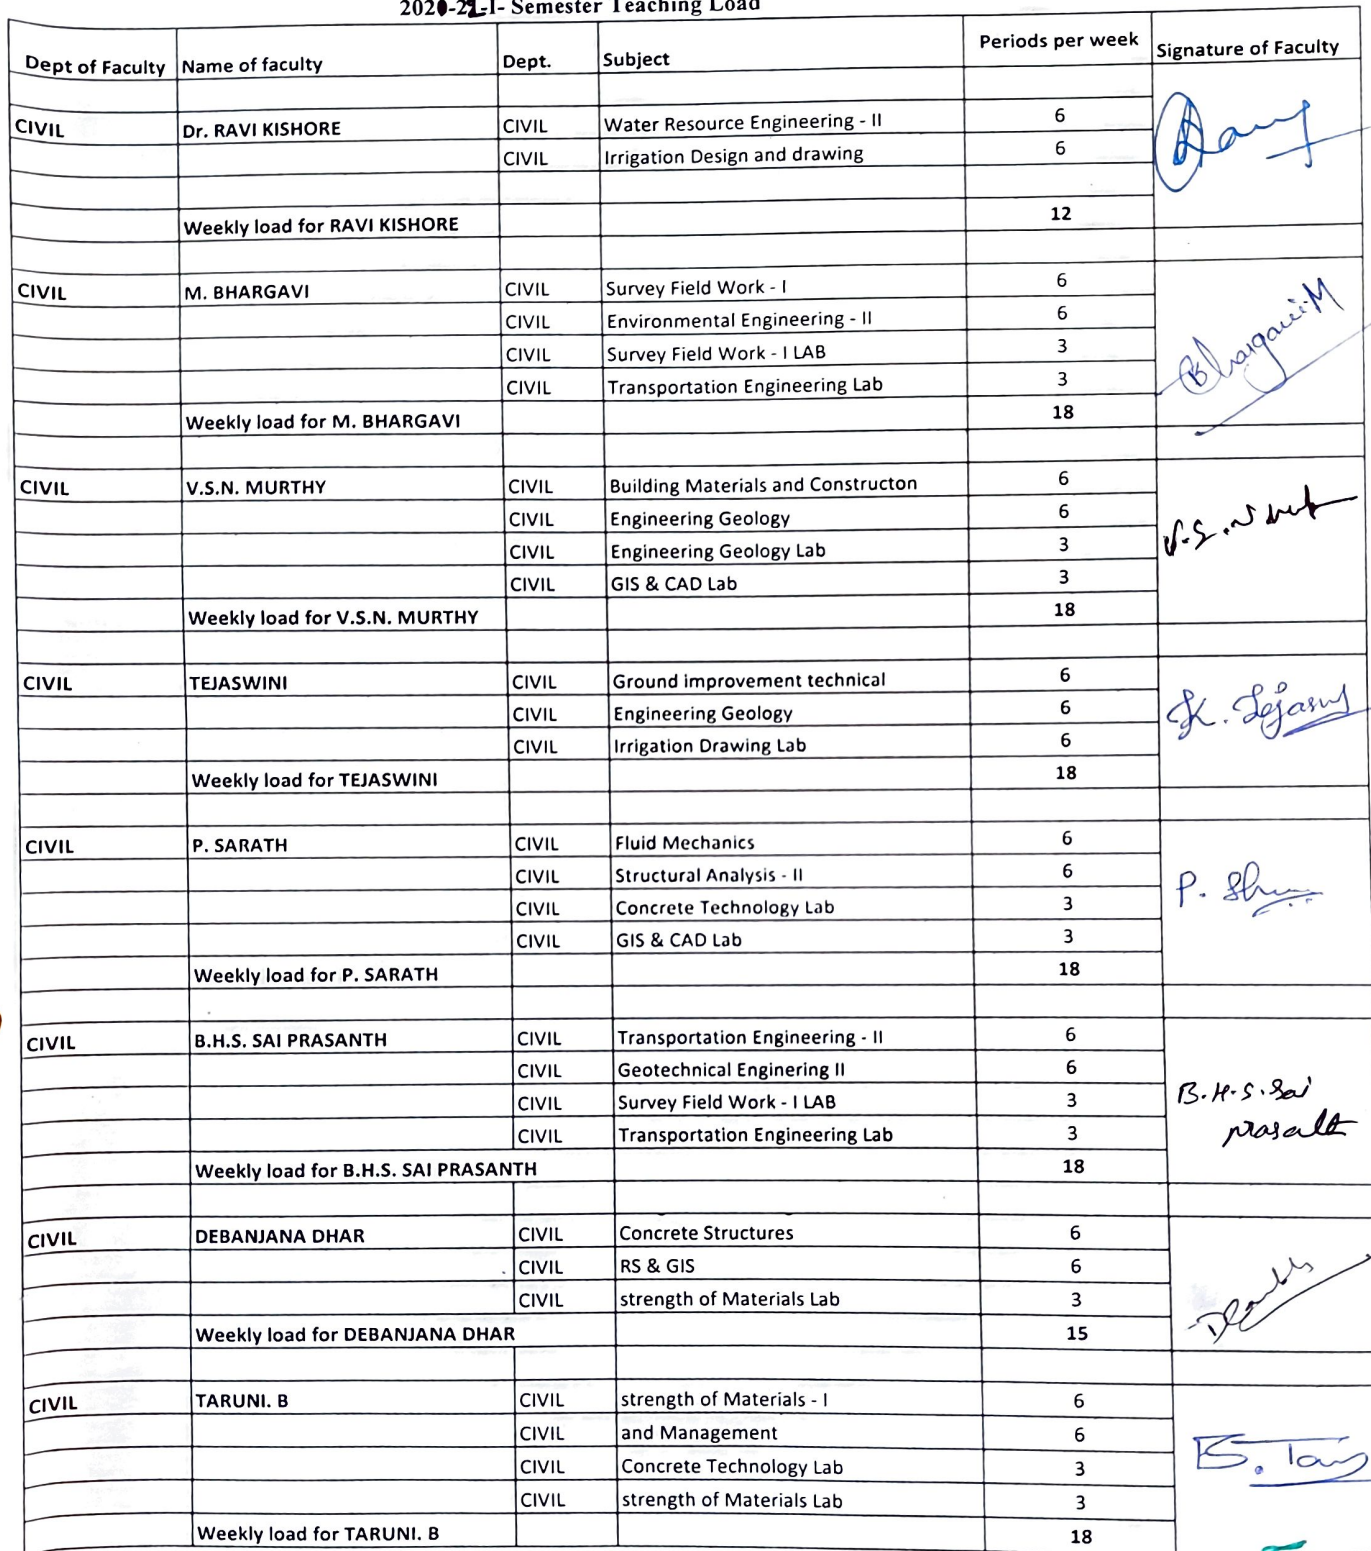 2020-21-I- Semester Teaching Load
Dept of Faculty Name of faculty Dept. Subject Periods per week Signature of Faculty
CIVIL Dr. RAVI KISHORE CIVIL Water Resource Engineering - II 6
CIVIL Irrigation Design and drawing 6
Weekly load for RAVI KISHORE 12
CIVIL M. BHARGAVI CIVIL Survey Field Work - I 6
CIVIL Environmental Engineering - II 6
CIVIL Survey Field Work - I LAB 3
CIVIL Transportation Engineering Lab 3
Bhargavi.M
Weekly load for M. BHARGAVI 18
CIVIL V.S.N. MURTHY CIVIL Building Materials and Constructon 6
CIVIL Engineering Geology 6
V.S.N
CIVIL Engineering Geology Lab 3
CIVIL GIS & CAD Lab 3
Weekly load for V.S.N. MURTHY 18
CIVIL TEJASWINI CIVIL Ground improvement technical 6
CIVIL Engineering Geology 6
K.
CIVIL Irrigation Drawing Lab 6
Weekly load for TEJASWINI 18
CIVIL P. SARATH CIVIL Fluid Mechanics 6
CIVIL Structural Analysis - II 6
P.
CIVIL Concrete Technology Lab 3
CIVIL GIS & CAD Lab 3
Weekly load for P. SARATH 18
CIVIL B.H.S. SAI PRASANTH CIVIL Transportation Engineering - II 6
CIVIL Geotechnical Enginering II 6
CIVIL Survey Field Work - I LAB 3 B.H.S.Sai
CIVIL Transportation Engineering Lab 3
Weekly load for B.H.S. SAI PRASANTH 18
CIVIL DEBANJANA DHAR CIVIL Concrete Structures 6
CIVIL RS & GIS 6
CIVIL strength of Materials Lab 3
Weekly load for DEBANJANA DHAR 15
CIVIL TARUNI. B CIVIL strength of Materials - I 6
CIVIL and Management 6
CIVIL Concrete Technology Lab 3
CIVIL strength of Materials Lab 3
Weekly load for TARUNI. B 18